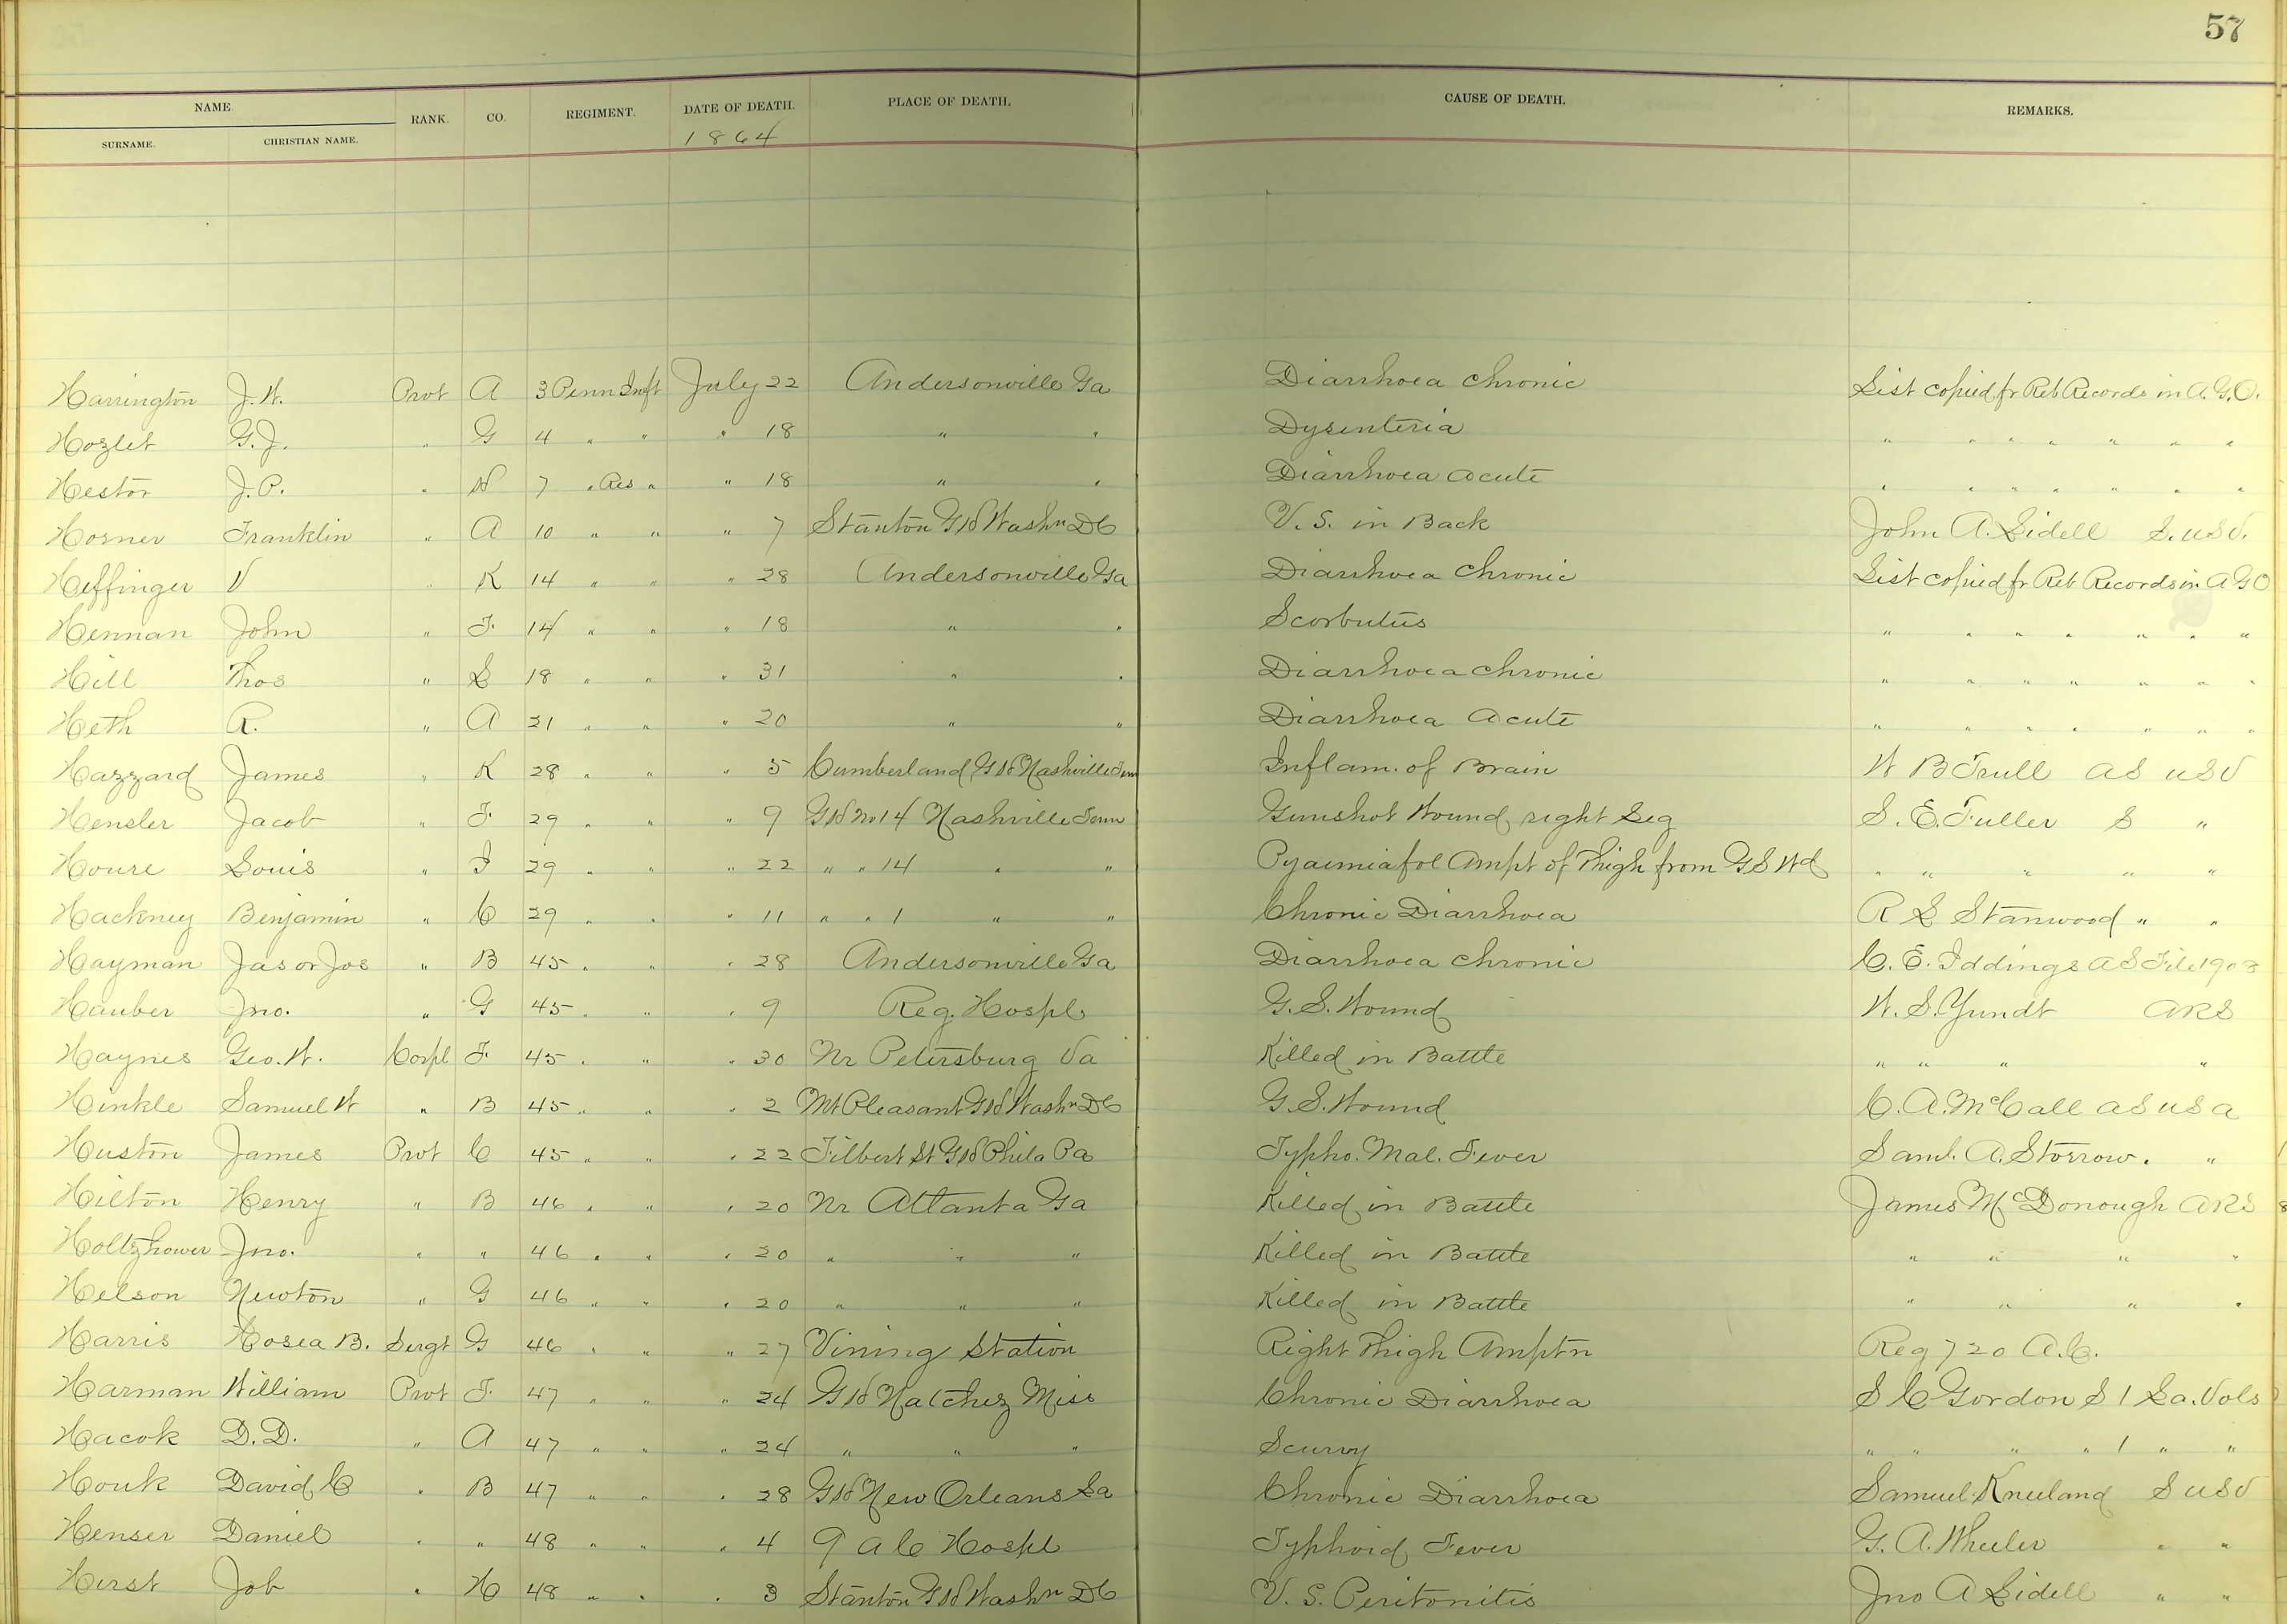 57
NAME. RANK. CO. REGIMENT. DATE OF DEATH. PLACE OF DEATH. CAUSE OF DEATH. REMARKS.
SURNAME. CHRISTIAN NAME. 1864
Harrington J. W. Prvt A 3 Penn Inft July 22 Andersonville Ga Diarrhoea Chronic List copied fr Reb Records in A.G.O.
Hozlet G. J. " G 4 " " " 18 " " Dysenteria " " " " " " "
Hestor J. P. " H 7 " Res " " 18 " " Diarrhoea acute " " " " " " "
Horner Franklin " A 10 " " " 7 Stanton G H Washn D C V. S. in Back John A. Lidell S. U S V.
Heffinger V " K 14 " " " 28 Andersonville Ga Diarrhoea Chronic List copied fr Reb Records in A G O
Hennan John " F. 14 " " " 18 " " Scorbutus " " " " " " "
Hill Thos " L 18 " " " 31 " " Diarrhoea Chronic " " " " " " "
Heth R. " A 21 " " " 20 " " Diarrhoea Acute " " " " " " "
Hazzard James " K 28 " " " 5 Cumberland G H Nashville Tenn Inflam. of Brain W B Trull A S U S V
Hensler Jacob " F. 29 " " " 9 G H No 14 Nashville Tenn Gunshot Wound, right Leg S. E. Fuller S "
Houre Louis " I 29 " " " 22 " " 14 " " Pyaemia fol Ampt of Thigh from G S Wd " " " " "
Hackney Benjamin " C 29 " " " 11 " " 1 " " Chronic Diarrhoea R L Stanwood " "
Hayman Jas or Jos " B 45 " " " 28 Andersonville Ga Diarrhoea Chronic C. E. Iddings A S File 1903
Hauber Jno. " G 45 " " " 9 Reg. Hospl. G. S. Wound W. S. Yundt A R S
Haynes Geo. W. Corpl F. 45 " " " 30 Nr Petersburg Va Killed in Battle " " " "
Hinkle Samuel W " B 45 " " " 2 Mt Pleasant G H Washn D C G. S. Wound C. A. McCall A S U S A
Huston James Prvt C 45 " " " 22 Filbert St G H Phila Pa Typho. Mal. Fever Saml. A. Storrow. "
Hilton Henry " B 46 " " " 20 Nr Atlanta Ga Killed in Battle James McDonough A R S
Holtzhower Jno. " " 46 " " " 20 " " " Killed in Battle " " " "
Helson Newton " G 46 " " " 20 " " " Killed in Battle " " " "
Harris Hosea B. Sergt G 46 " " " 27 Vining Station Right Thigh Amptn Reg 720 A. C.
Harman William Prvt F. 47 " " " 24 G H Natchez Miss Chronic Diarrhoea S C Gordon S 1 La. Vols
Hacok D. D. " A 47 " " " 24 " " " Scurvy " " " " 1 " "
Houk David C " B 47 " " " 28 G H New Orleans La Chronic Diarrhoea Samuel Kneeland S U S V
Henser Daniel " " 48 " " " 4 9 A C Hospl Typhoid Fever G. A. Wheeler " "
Hirst Job " H 48 " " " 3 Stanton G H Washn D C V. S. Peritonitis Jno A Lidell " "